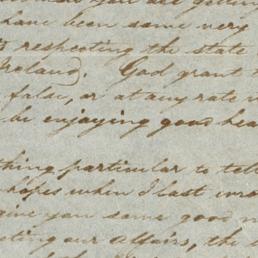 you are getting
have been some very
respecting the state
Ireland). God grant t
false, or at any rate
be enjoying good hea
thing particular to tell
hopes when I last
give you some good
ting our affairs, the